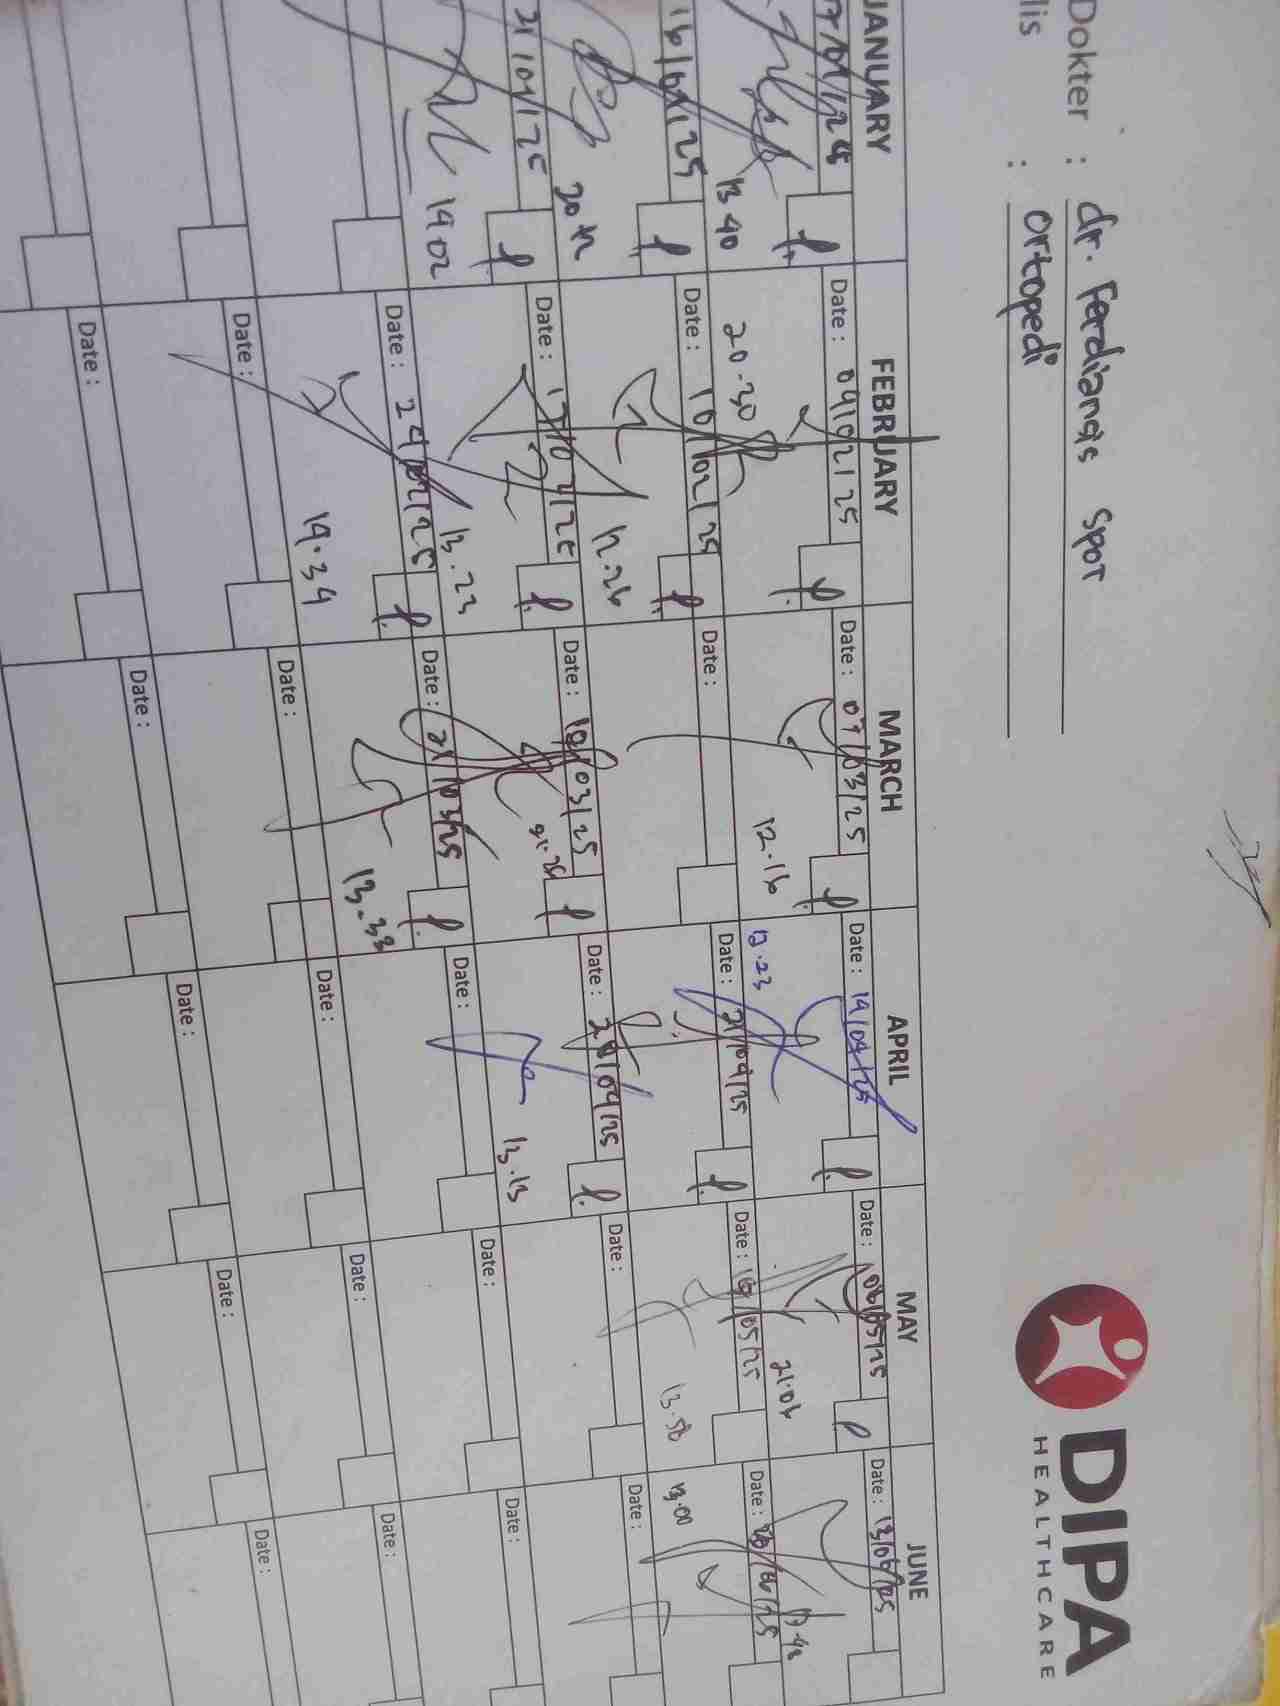 Dokter : dr. Ferdiansis SpOT
lis : Ortopedi
DIPA
HEALTHCARE
JANUARY FEBRUARY MARCH APRIL MAY JUNE
Date : 04/02/25 Date : 07/03/25 Date : 14/04/25 Date : 06/05/25 Date : 13/06/25
13.40 20.30 12.16 12.23 21.06
16/01/25 Date : 10/02/25 Date : Date : 21/04/25 Date : 16/05/25 Date :
12.26 13.56 13.00
21/01/25 Date : 17/02/25 Date : Date : 28/04/25 Date : Date :
19 02 13.23 13.13
Date : 24/02/25 Date : 21/03/25 Date : Date : Date :
19.34 13.33
Date : Date : Date : Date : Date :
Date : Date : Date : Date : Date :